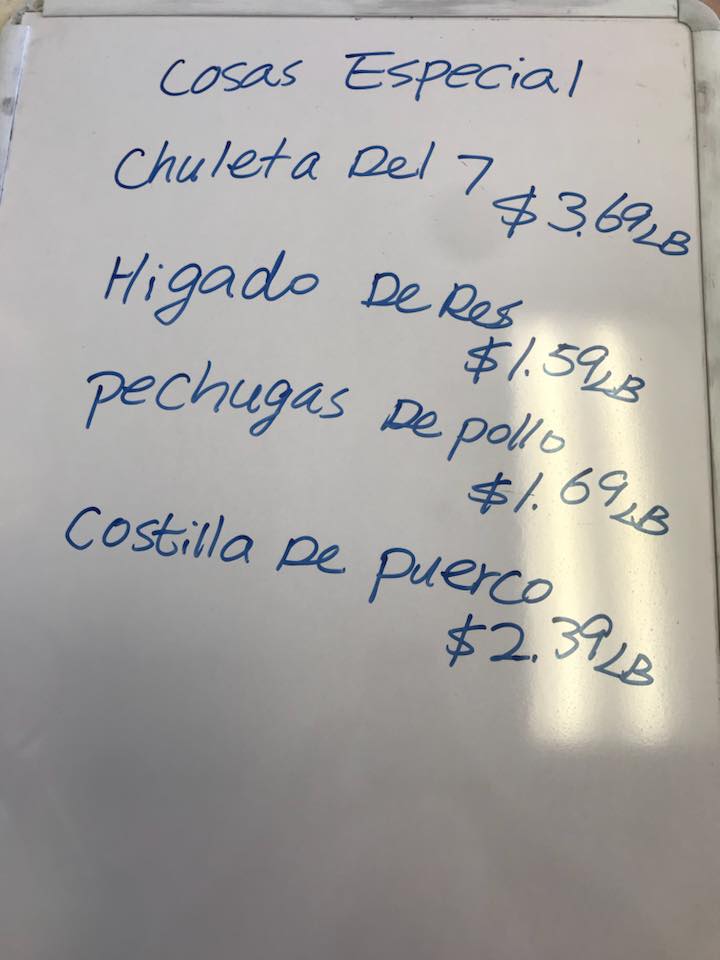 Cosas Especial
Chuleta Del 7
$3.69 LB
Higado De Res
$1.59 LB
Pechugas De pollo
$1.69 LB
Costilla De Puerco
$2.39 LB